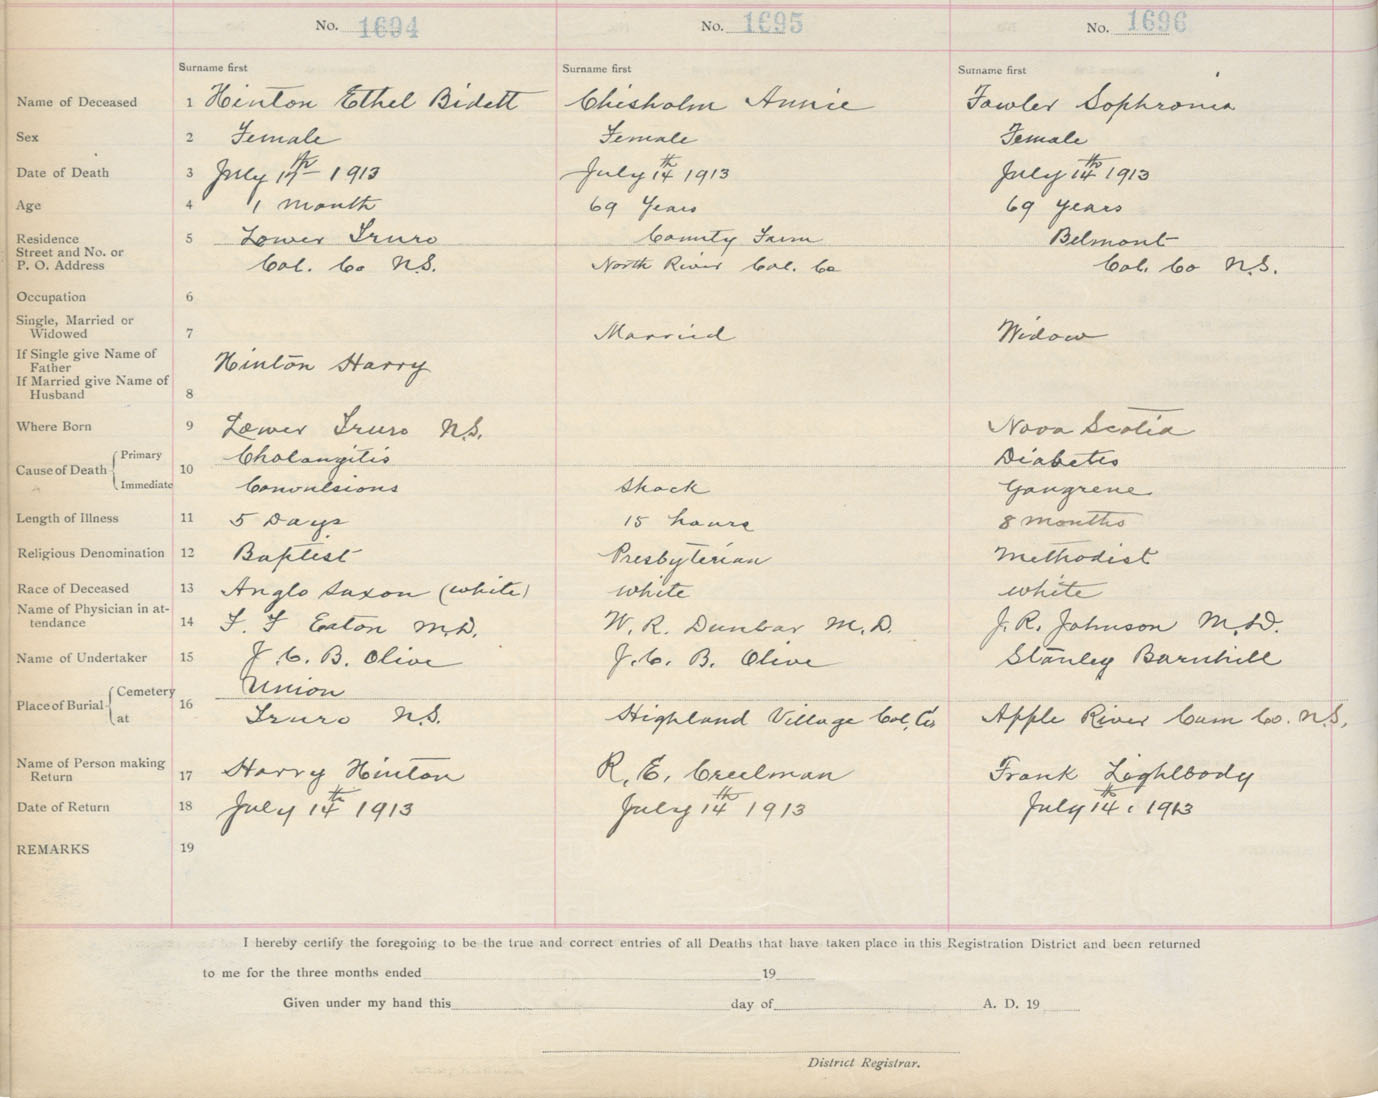 No. 1694 No. 1695 No. 1696
Surname first Surname first Surname first
Name of Deceased 1 Hinton Ethel Bidett Chisholm Annie Fowler Sophronia
Sex 2 Female Female Female
Date of Death 3 July 1913 July 14th 1913 July 14th 1913
Age 4 1 month 69 Years 69 Years
Residence 5 Lower Truro County Farm Belmont
Street and No. or
P. O. Address Col. Co N.S. North River Col. Co Col. Co N.S.
Occupation 6
Single, Married or
Widowed 7 Married Widow
If Single give Name of
Father Hinton Harry
If Married give Name of
Husband 8
Where Born 9 Lower Truro N.S. Nova Scotia
Cause of Death Primary 10 Cholangitis Diabetes
Immediate Convulsions Shock Gangrene
Length of Illness 11 5 Days 15 hours 8 months
Religious Denomination 12 Baptist Presbyterian Methodist
Race of Deceased 13 Anglo Saxon (white) white white
Name of Physician in at-
tendance 14 F. F Eaton M.D. W. R. Dunbar M.D. J. R. Johnson M.D.
Name of Undertaker 15 J. C. B. Olive J. C. B. Olive Stanley Barnhill
Place of Burial Cemetery 16 Union
at Truro N.S. Highland Village Col. Co Apple River Cum Co. N.S.
Name of Person making
Return 17 Harry Hinton R. E. Creelman Frank Lighlbody
Date of Return 18 July 14th 1913 July 14th 1913 July 14th 1913
REMARKS 19
I hereby certify the foregoing to be the true and correct entries of all Deaths that have taken place in this Registration District and been returned
to me for the three months ended 19
Given under my hand this day of A. D. 19
District Registrar.